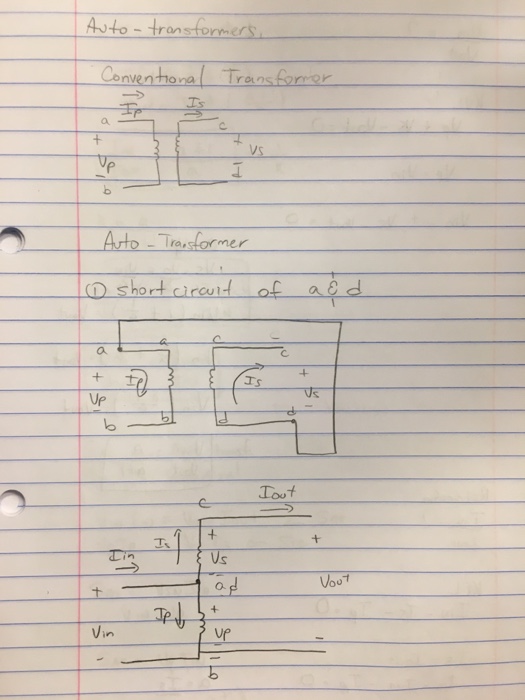 Auto - transformers.
Conventional Transformer
Ip Is
a c
+ + Vs
Vp
- -
b
Auto - Transformer
① short circuit of a & d
a a c - c
+ Ip Is +
Vp Vs
- -
b b d d
c Iout
Is + +
Iin Vs
+ - a,d Vout
Ip +
Vin Vp
- - -
b